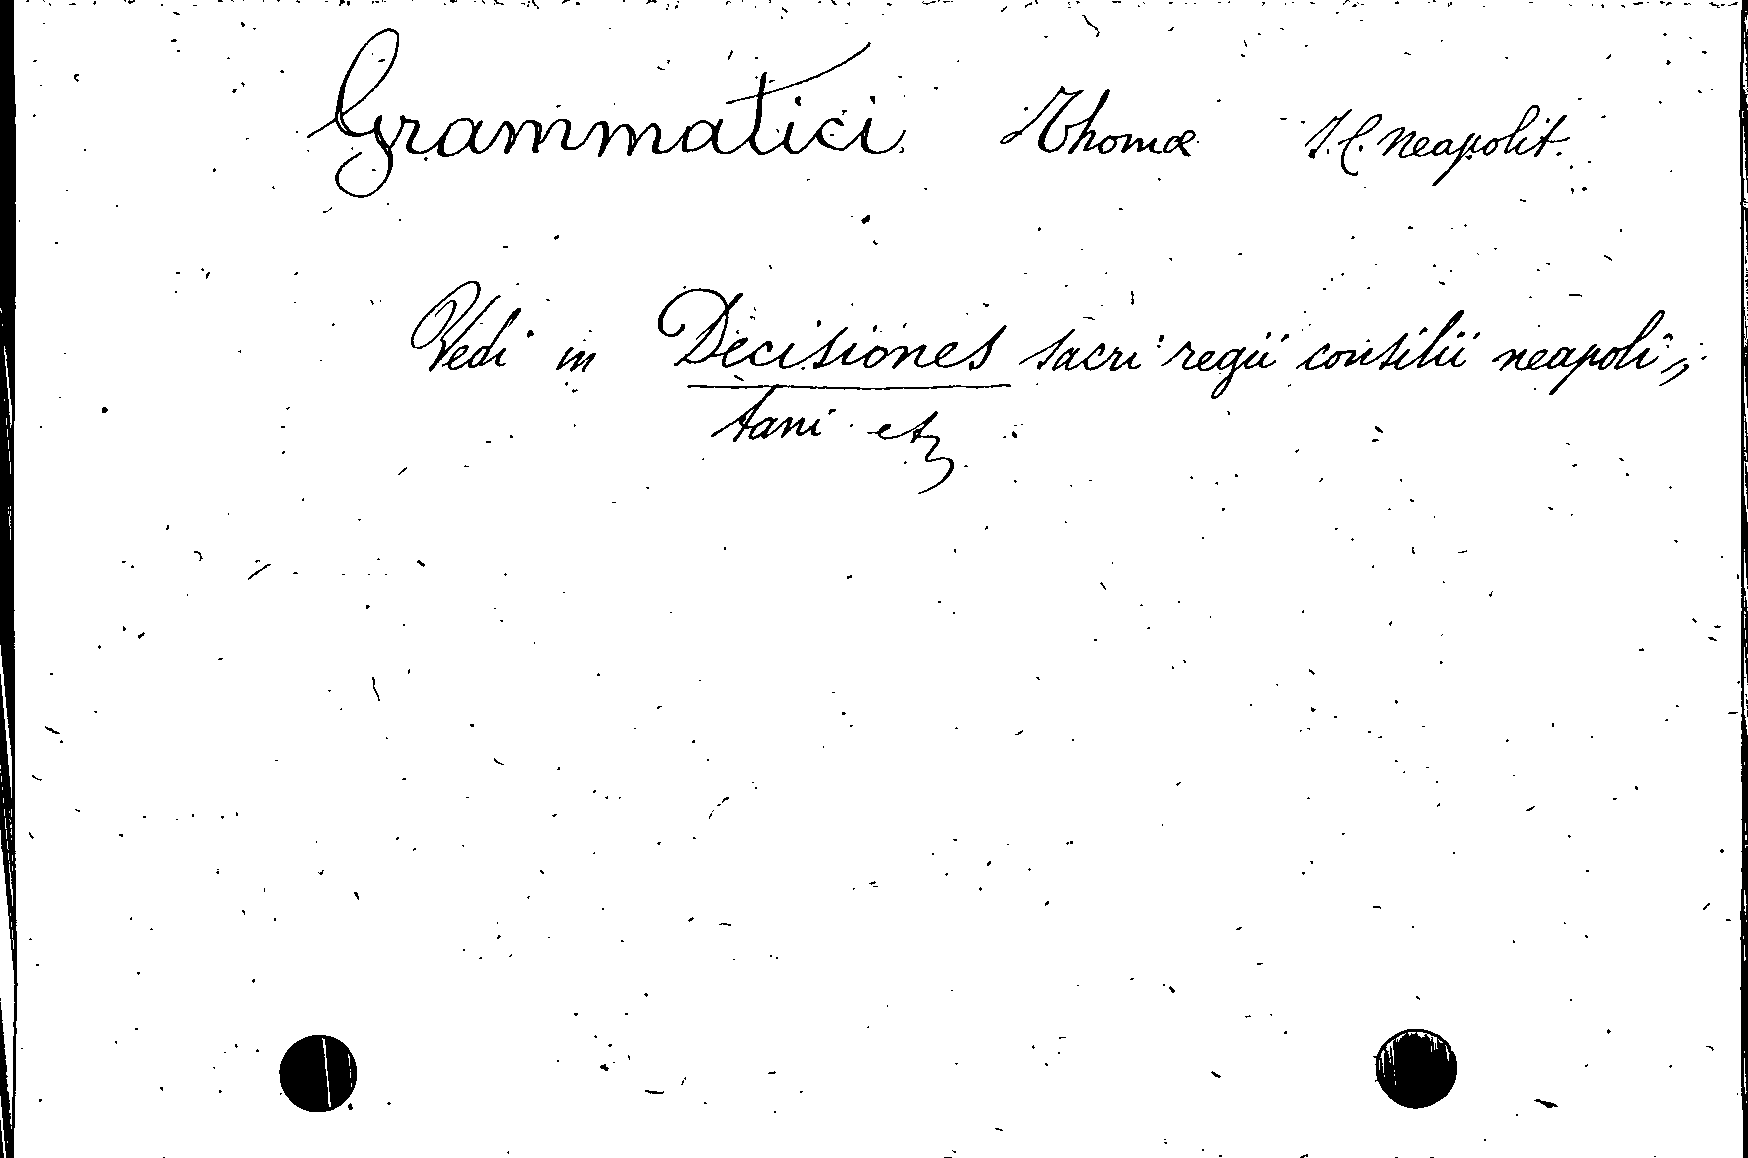 Grammatici Thomæ J. C. Neapolit.
Vedi in Decisiones sacri regii consilii neapoli„
tani etz